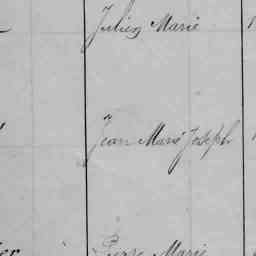 Julien Marie
Jean Marie Joseph
Pierre Marie